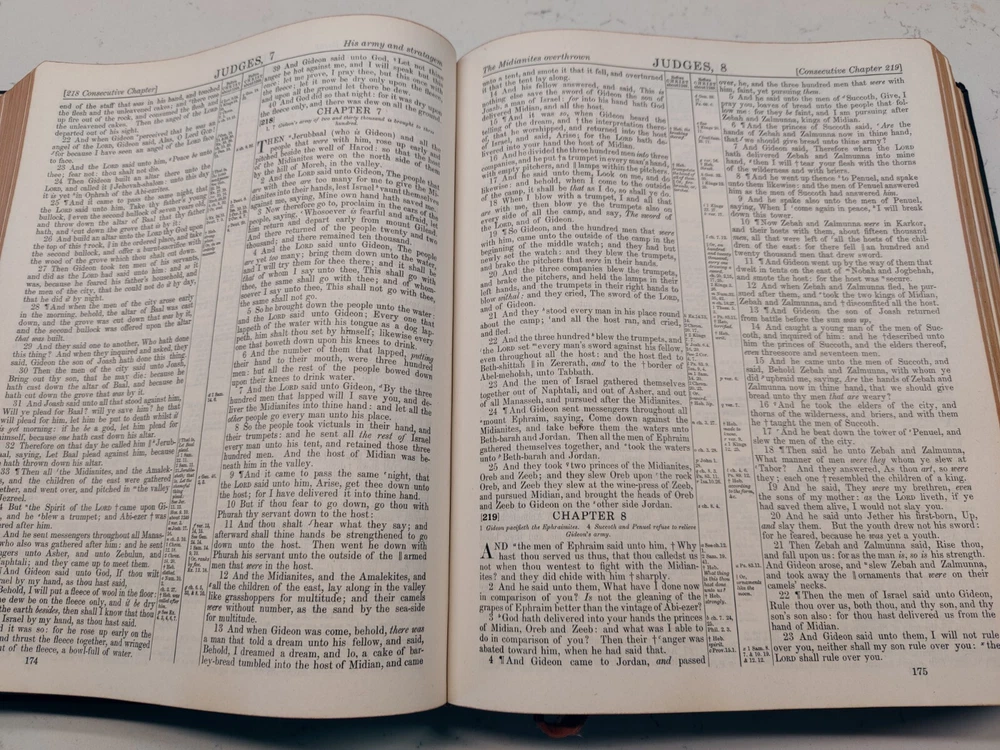 [218 Consecutive Chapter]
JUDGES, 7
His army and stratagem
end of the staff that was in his hand, and touched
the flesh and the unleavened cakes; and there rose
up fire out of the rock, and consumed the flesh and
the unleavened cakes. Then the angel of the LORD
departed out of his sight.
22 And when Gideon perceived that he was an
angel of the LORD, Gideon said, Alas, O Lord GOD!
for because I have seen an angel of the LORD face
to face.
23 And the LORD said unto him, Peace be unto
thee; fear not: thou shalt not die.
24 Then Gideon built an altar there unto the
LORD, and called it Jehovah-shalom: unto this day
it is yet in Ophrah of the Abi-ezrites.
25 ¶ And it came to pass the same night, that
the LORD said unto him, Take thy father's young
bullock, even the second bullock of seven years old,
and throw down the altar of Baal that thy father
hath, and cut down the grove that is by it:
26 And build an altar unto the LORD thy God upon
the top of this rock, in the ordered place, and take
the second bullock, and offer a burnt-sacrifice with
the wood of the grove which thou shalt cut down.
27 Then Gideon took ten men of his servants,
and did as the LORD had said unto him: and so it
was, because he feared his father's household, and
the men of the city, that he could not do it by day,
that he did it by night.
28 ¶ And when the men of the city arose early
in the morning, behold, the altar of Baal was cast
down, and the grove was cut down that was by it,
and the second bullock was offered upon the altar
that was built.
29 And they said one to another, Who hath done
this thing? And when they inquired and asked, they
said, Gideon the son of Joash hath done this thing.
30 Then the men of the city said unto Joash,
Bring out thy son, that he may die: because he
hath cast down the altar of Baal, and because he
hath cut down the grove that was by it.
31 And Joash said unto all that stood against him,
Will ye plead for Baal? will ye save him? he that
will plead for him, let him be put to death whilst it
is yet morning: if he be a god, let him plead for
himself, because one hath cast down his altar.
32 Therefore on that day he called him Jerub-
baal, saying, Let Baal plead against him, because
he hath thrown down his altar.
33 ¶ Then all the Midianites, and the Amalek-
ites, and the children of the east were gathered
together, and went over, and pitched in the valley
of Jezreel.
34 But the Spirit of the LORD came upon Gi-
deon, and he blew a trumpet; and Abi-ezer was
gathered after him.
And he sent messengers throughout all Manas-
who also was gathered after him: and he sent
messengers unto Asher, and unto Zebulun, and unto
Naphtali; and they came up to meet them.
¶ And Gideon said unto God, If thou wilt
save Israel by my hand, as thou hast said,
Behold, I will put a fleece of wool in the floor:
if the dew be on the fleece only, and it be dry
upon all the earth besides, then shall I know that thou
wilt save Israel by my hand, as thou hast said.
And it was so: for he rose up early on the
morrow, and thrust the fleece together, and wringed
the dew out of the fleece, a bowl-full of water.
174
39 And Gideon said unto God, Let not thine
anger be hot against me, and I will speak but this
once: let me prove, I pray thee, but this once with
the fleece; let it now be dry only upon the fleece,
and upon all the ground let there be dew.
40 And God did so that night: for it was dry upon
the fleece only, and there was dew on all the ground.
CHAPTER 7
218
1 Gideon's army of two and thirty thousand is brought to three
hundred.
THEN Jerubbaal (who is Gideon) and all the
people that were with him, rose up early, and
pitched beside the well of Harod: so that the host
of the Midianites were on the north side of them
by the hill of Moreh, in the valley.
2 And the LORD said unto Gideon, The people that
are with thee are too many for me to give the Mi-
dianites into their hands, lest Israel vaunt themselves
against me, saying, Mine own hand hath saved me.
3 Now therefore go to, proclaim in the ears of the
people, saying, Whosoever is fearful and afraid, let
him return and depart early from mount Gilead.
And there returned of the people twenty and two
thousand; and there remained ten thousand.
4 And the LORD said unto Gideon, The people
are yet too many; bring them down unto the water,
and I will try them for thee there; and it shall be,
that of whom I say unto thee, This shall go with
thee, the same shall go with thee; and of whom-
soever I say unto thee, This shall not go with thee,
the same shall not go.
5 So he brought down the people unto the water:
and the LORD said unto Gideon, Every one that
lappeth of the water with his tongue as a dog lap-
peth, him shalt thou set by himself; likewise every
one that boweth down upon his knees to drink.
6 And the number of them that lapped, putting
their hand to their mouth, were three hundred
men: but all the rest of the people bowed down
upon their knees to drink water.
7 And the LORD said unto Gideon, By the three
hundred men that lapped will I save you, and de-
liver the Midianites into thine hand: and let all the
other people go every man unto his place.
8 So the people took victuals in their hand, and
their trumpets: and he sent all the rest of Israel
every man unto his tent, and retained those three
hundred men. And the host of Midian was be-
neath him in the valley.
9 ¶ And it came to pass the same night, that
the LORD said unto him, Arise, get thee down unto
the host; for I have delivered it into thine hand.
10 But if thou fear to go down, go thou with
Phurah thy servant down to the host:
11 And thou shalt hear what they say; and
afterward shall thine hands be strengthened to go
down unto the host. Then went he down with
Phurah his servant unto the outside of the armed
men that were in the host.
12 And the Midianites, and the Amalekites, and
all the children of the east, lay along in the valley
like grasshoppers for multitude; and their camels
were without number, as the sand by the sea-side
for multitude.
13 And when Gideon was come, behold, there was
a man that told a dream unto his fellow, and said,
Behold, I dreamed a dream, and lo, a cake of bar-
ley-bread tumbled into the host of Midian, and came
The Midianites overthrown
JUDGES, 8
[Consecutive Chapter 219]
unto a tent, and smote it that it fell, and overturned
it, that the tent lay along.
14 And his fellow answered, and said, This is
nothing else save the sword of Gideon the son of
Joash, a man of Israel: for into his hand hath God
delivered Midian, and all the host.
15 ¶ And it was so, when Gideon heard the
telling of the dream, and the interpretation there-
of, that he worshipped, and returned into the host
of Israel, and said, Arise; for the LORD hath de-
livered into your hand the host of Midian.
16 And he divided the three hundred men into three
companies, and he put a trumpet in every man's hand,
with empty pitchers, and lamps within the pitchers.
17 And he said unto them, Look on me, and do
likewise: and behold, when I come to the outside
of the camp, it shall be that as I do, so shall ye do.
18 When I blow with a trumpet, I and all that
are with me, then blow ye the trumpets also on
every side of all the camp, and say, The sword of
the LORD, and of Gideon.
19 ¶ So Gideon, and the hundred men that were
with him, came unto the outside of the camp in the
beginning of the middle watch; and they had but
newly set the watch: and they blew the trumpets,
and brake the pitchers that were in their hands.
20 And the three companies blew the trumpets,
and brake the pitchers, and held the lamps in their
left hands, and the trumpets in their right hands to
blow withal: and they cried, The sword of the LORD,
and of Gideon.
21 And they stood every man in his place round
about the camp: and all the host ran, and cried,
and fled.
22 And the three hundred blew the trumpets, and
the LORD set every man's sword against his fellow,
even throughout all the host: and the host fled to
Beth-shittah in Zererath, and to the border of
Abel-meholah, unto Tabbath.
23 And the men of Israel gathered themselves
together out of Naphtali, and out of Asher, and out
of all Manasseh, and pursued after the Midianites.
24 ¶ And Gideon sent messengers throughout all
mount Ephraim, saying, Come down against the
Midianites, and take before them the waters unto
Beth-barah and Jordan. Then all the men of Ephraim
gathered themselves together, and took the waters
unto Beth-barah and Jordan.
25 And they took two princes of the Midianites,
Oreb and Zeeb; and they slew Oreb upon the rock
Oreb, and Zeeb they slew at the wine-press of Zeeb,
and pursued Midian, and brought the heads of Oreb
and Zeeb to Gideon on the other side Jordan.
[219]
CHAPTER 8
1 Gideon pacifieth the Ephraimites. 4 Succoth and Penuel refuse to relieve
Gideon's army.
AND the men of Ephraim said unto him, † Why
hast thou served us thus, that thou calledst us
not when thou wentest to fight with the Midian-
ites? and they did chide with him † sharply.
2 And he said unto them, What have I done now
in comparison of you? Is not the gleaning of the
grapes of Ephraim better than the vintage of Abi-ezer?
3 God hath delivered into your hands the princes
of Midian, Oreb and Zeeb: and what was I able to
do in comparison of you? Then their † anger was
abated toward him, when he had said that.
4 ¶ And Gideon came to Jordan, and passed
over, he, and the three hundred men that were with
him, faint, yet pursuing them.
5 And he said unto the men of Succoth, Give, I
pray you, loaves of bread unto the people that fol-
low me; for they be faint, and I am pursuing after
Zebah and Zalmunna, kings of Midian.
6 ¶ And the princes of Succoth said, Are the
hands of Zebah and Zalmunna now in thine hand,
that we should give bread unto thine army?
7 And Gideon said, Therefore when the LORD
hath delivered Zebah and Zalmunna into mine
hand, then I will † tear your flesh with the thorns
of the wilderness and with briers.
8 ¶ And he went up thence to Penuel, and spake
unto them likewise: and the men of Penuel answered
him as the men of Succoth had answered him.
9 And he spake also unto the men of Penuel,
saying, When I come again in peace, I will break
down this tower.
10 ¶ Now Zebah and Zalmunna were in Karkor,
and their hosts with them, about fifteen thousand
men, all that were left of all the hosts of the chil-
dren of the east: for there fell an hundred and
twenty thousand men that drew sword.
11 ¶ And Gideon went up by the way of them that
dwelt in tents on the east of Nobah and Jogbehah,
and smote the host: for the host was secure.
12 And when Zebah and Zalmunna fled, he pur-
sued after them, and took the two kings of Midian,
Zebah and Zalmunna, and † discomfited all the host.
13 ¶ And Gideon the son of Joash returned
from battle before the sun was up,
14 And caught a young man of the men of Suc-
coth, and inquired of him: and he † described unto
him the princes of Succoth, and the elders thereof,
even threescore and seventeen men.
15 And he came unto the men of Succoth, and
said, Behold Zebah and Zalmunna, with whom ye
did upbraid me, saying, Are the hands of Zebah and
Zalmunna now in thine hand, that we should give
bread unto thy men that are weary?
16 And he took the elders of the city, and
thorns of the wilderness, and briers, and with them
he † taught the men of Succoth.
17 And he beat down the tower of Penuel, and
slew the men of the city.
18 ¶ Then said he unto Zebah and Zalmunna,
What manner of men were they whom ye slew at
Tabor? And they answered, As thou art, so were
they; each one † resembled the children of a king.
19 And he said, They were my brethren, even
the sons of my mother: as the LORD liveth, if ye
had saved them alive, I would not slay you.
20 And he said unto Jether his first-born, Up,
and slay them. But the youth drew not his sword:
for he feared, because he was yet a youth.
21 Then Zebah and Zalmunna said, Rise thou,
and fall upon us: for as the man is, so is his strength.
And Gideon arose, and slew Zebah and Zalmunna,
and took away the ornaments that were on their
camels' necks.
22 ¶ Then the men of Israel said unto Gideon,
Rule thou over us, both thou, and thy son, and thy
son's son also: for thou hast delivered us from the
hand of Midian.
23 And Gideon said unto them, I will not rule
over you, neither shall my son rule over you: the
LORD shall rule over you.
175